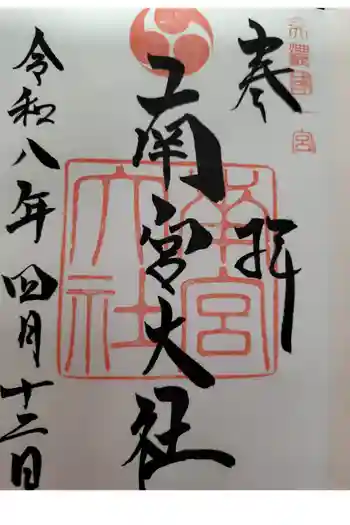 美濃國一宮
奉拝
南宮大社
南宮
大社
令和八年四月十二日